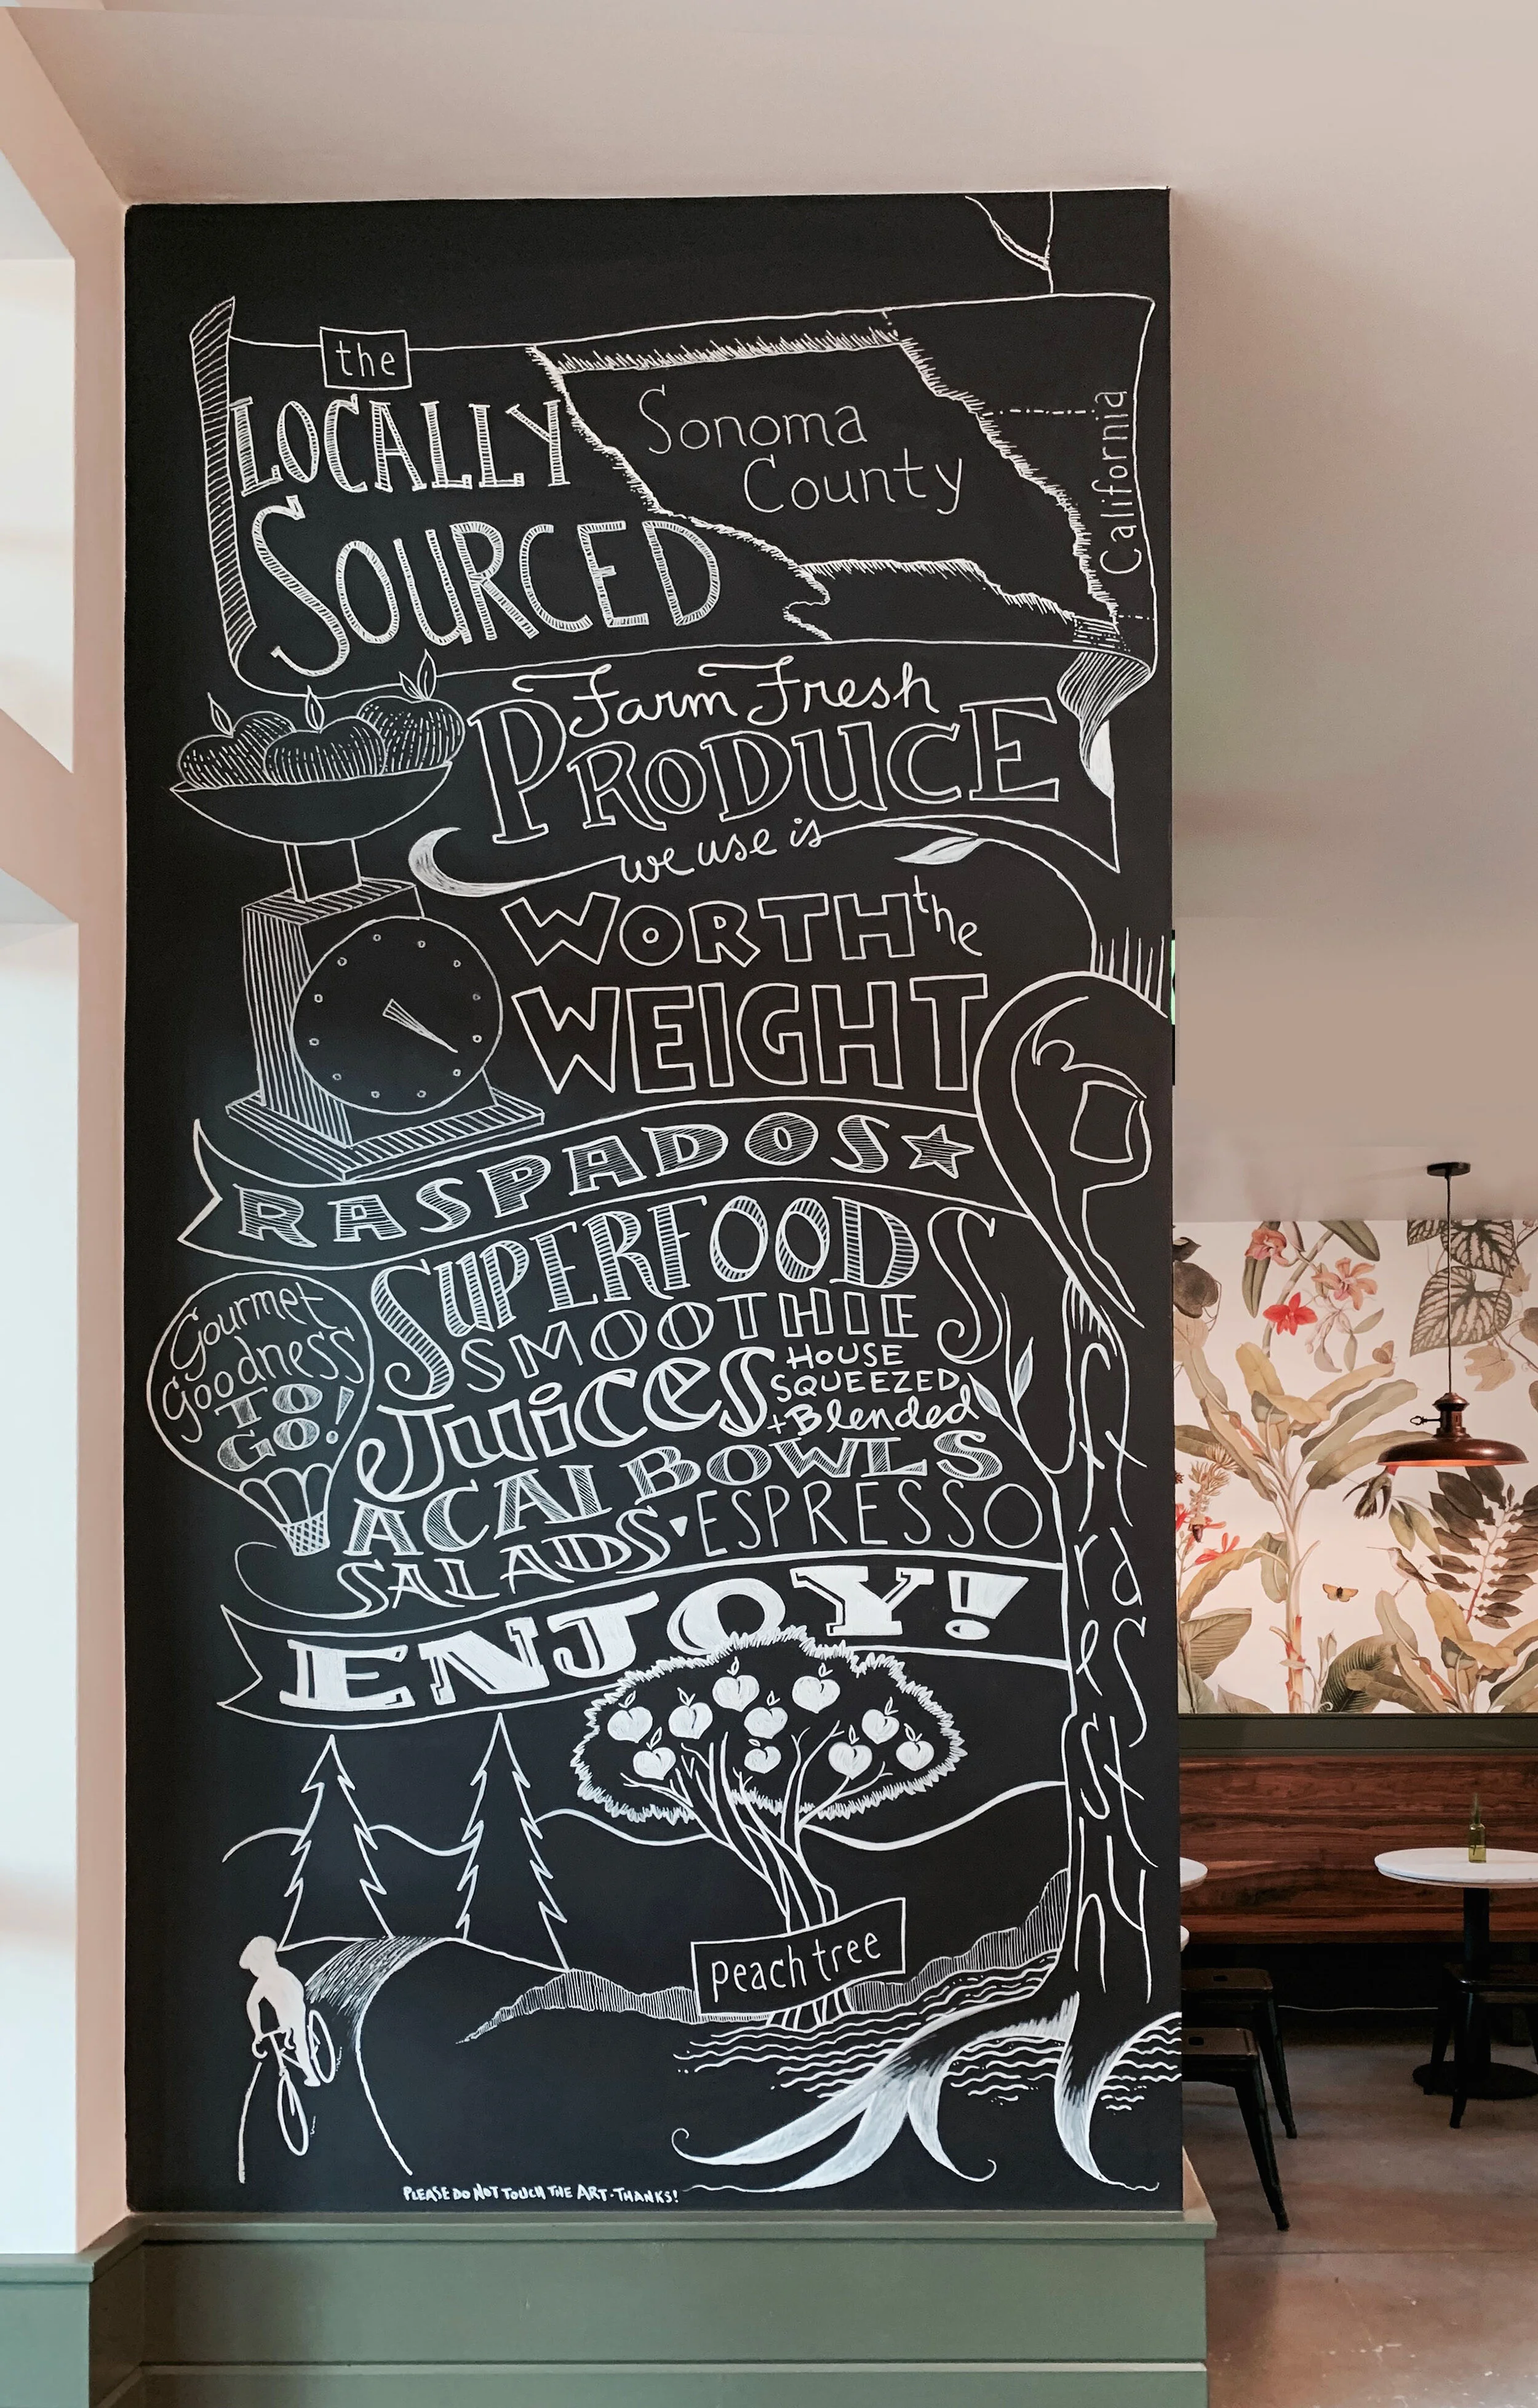 the
LOCALLY
SOURCED
Sonoma
County
California
Farm Fresh
PRODUCE
we use is
WORTH the
WEIGHT
RASPADOS
SUPERFOOD
SMOOTHIES
JUiCES HOUSE
SQUEEZED
+Blended
ACAI BOWLS
SALADS ESPRESSO
Gourmet
Goodness
TO
GO!
ENJOY!
fresh
tasty
peach tree
PLEASE DO NOT TOUCH THE ART-THANKS!